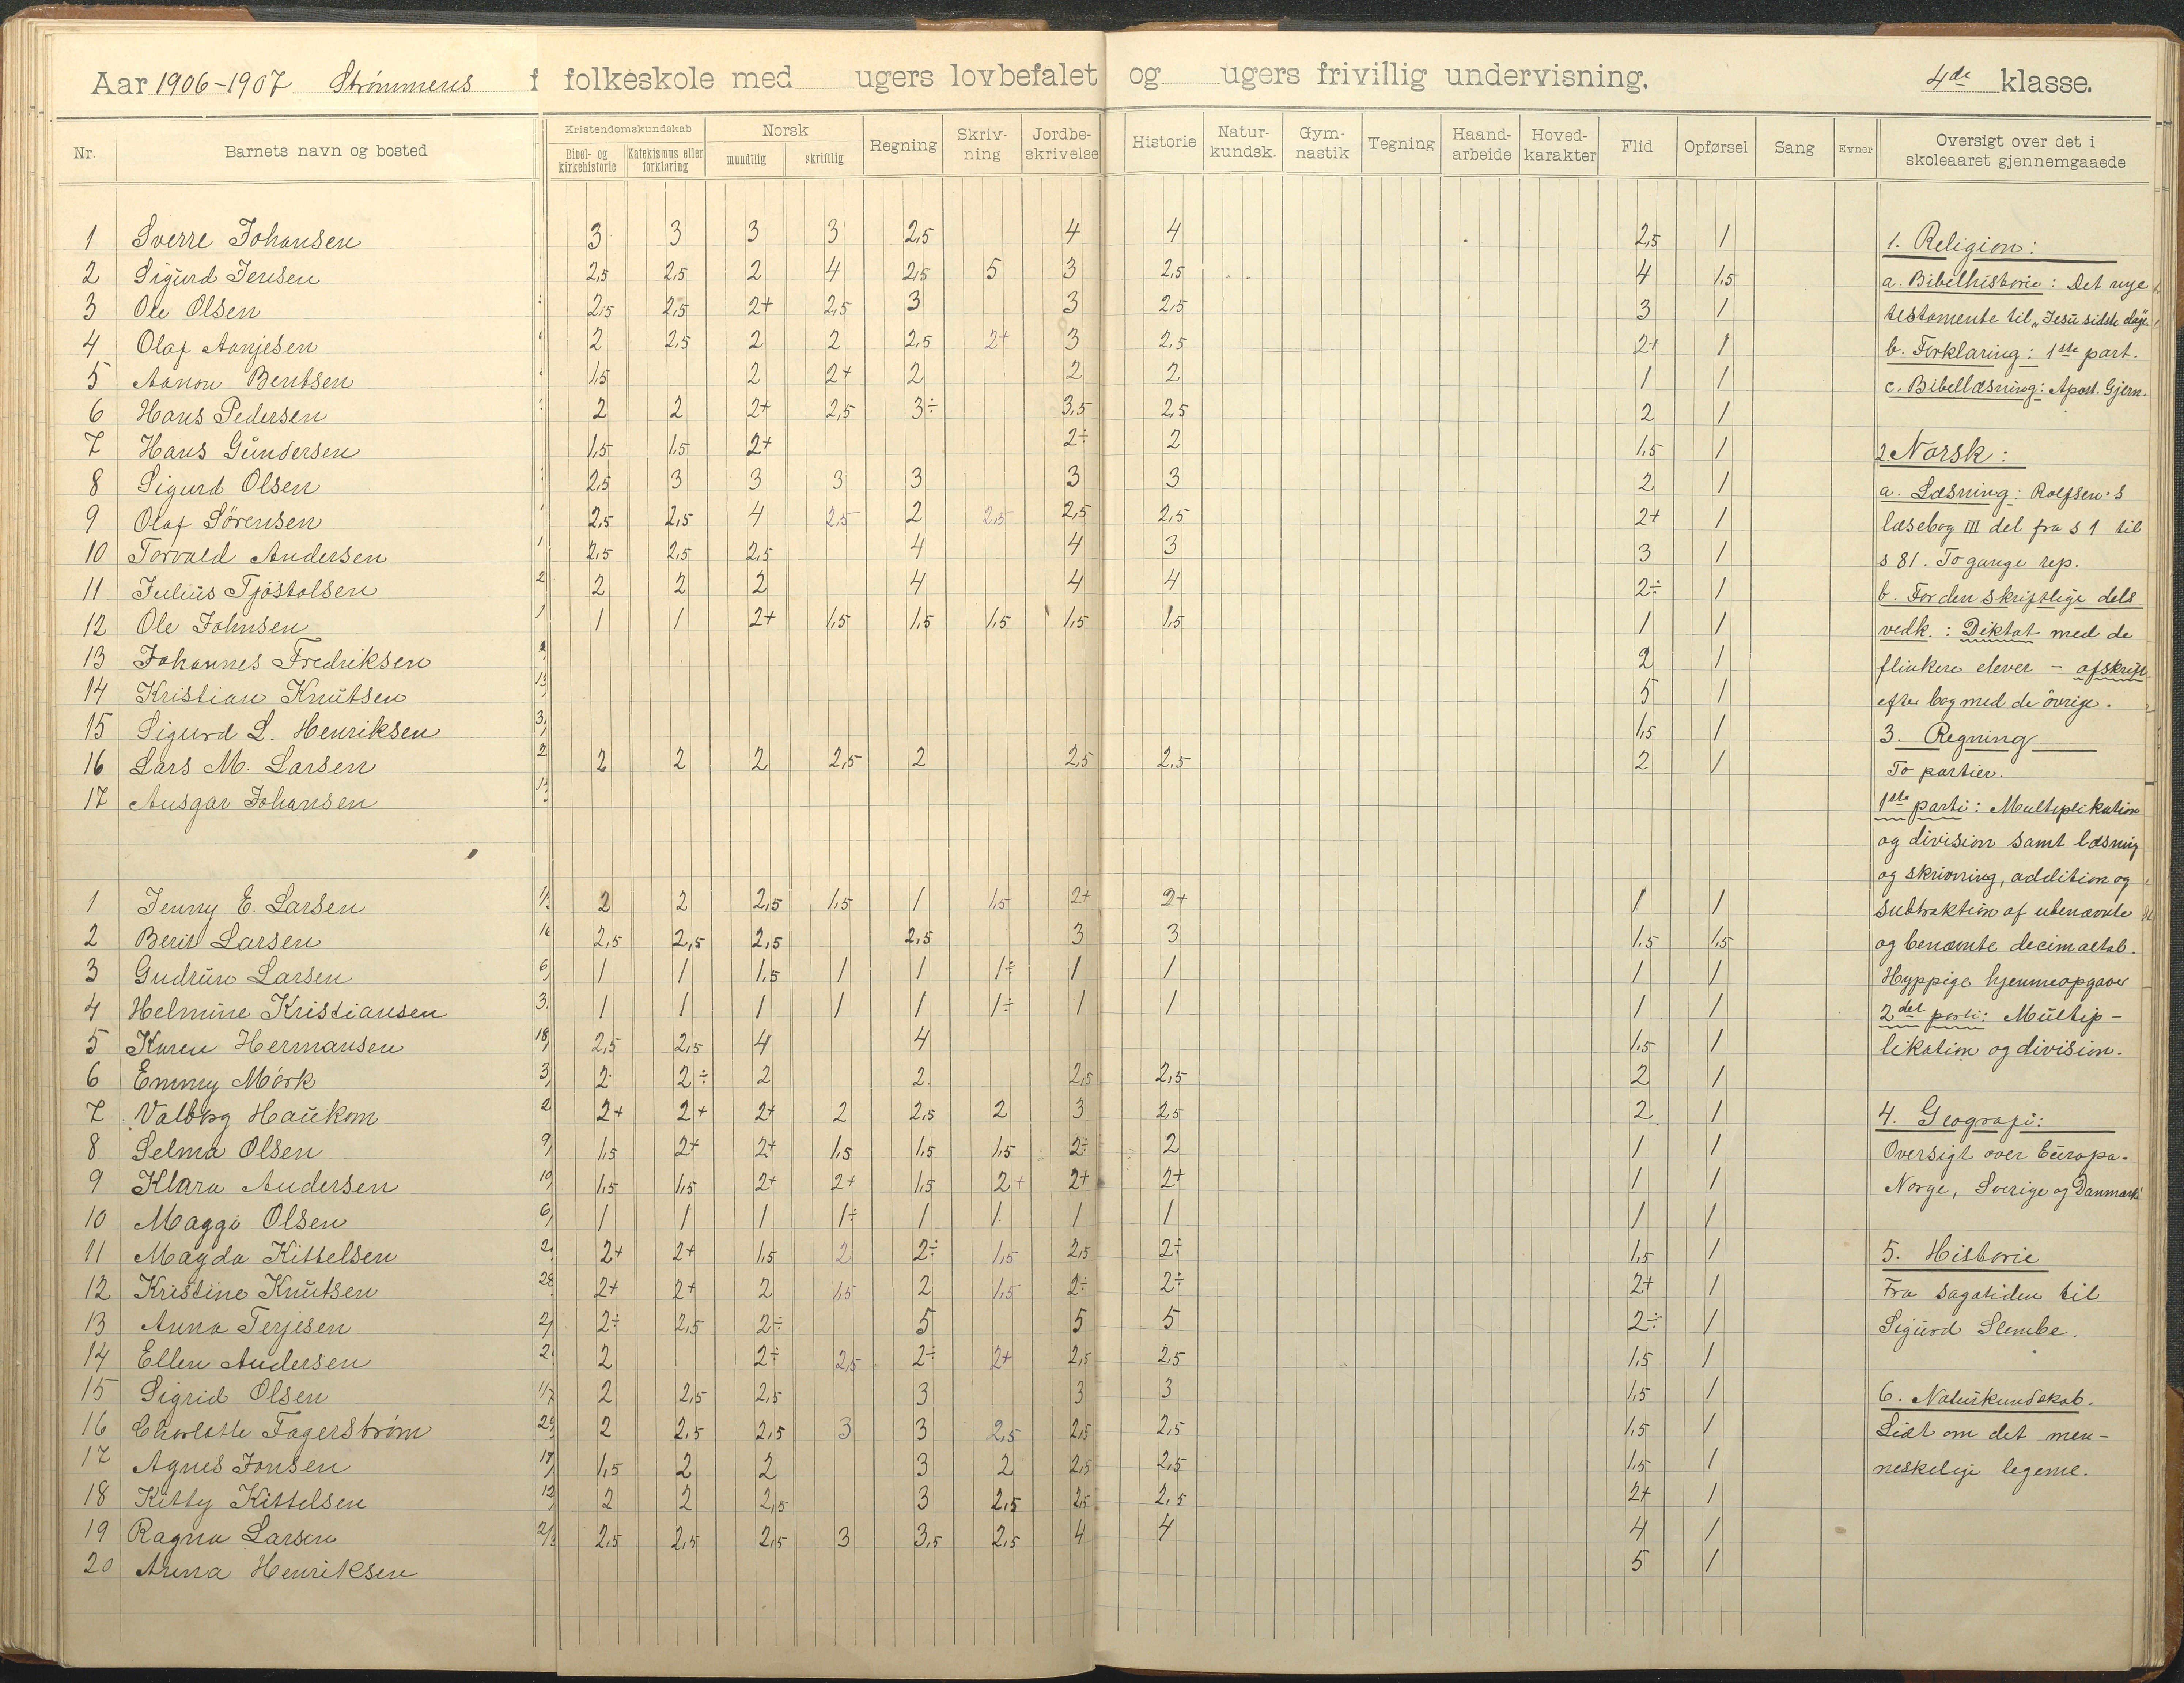 Aar 1906-1907 Strømmens f folkeskole med ugers lovbefalet og ugers frivillig undervisning. 4de klasse.
Nr. Barnets navn og bosted Kristendomskundskab Bibel- og kirkehistorie Katekismus eller forklaring Norsk mundtlig skriftlig Regning Skriv-ning Jordbe-skrivelse Historie Natur-kundsk. Gym-nastik Tegning Haand-arbeide Hoved-karakter Flid Opførsel Sang Evner Oversigt over det i skoleaaret gjennemgaaede
1 Sverre Johansen 3 3 3 3 2,5 4 4 2,5 1
2 Sigurd Jensen 2,5 2,5 2 4 2,5 5 3 2,5 4 1,5
3 Ole Olsen 2,5 2,5 2+ 2,5 3 3 2,5 3 1
4 Olaf Aanjesen 2 2,5 2 2 2,5 2+ 3 2,5 2+ 1
5 Aanon Bentsen 1,5 2 2+ 2 2 2 1 1
6 Hans Pedersen 2 2 2+ 2,5 3÷ 3,5 2,5 2 1
7 Hans Gundersen 1,5 1,5 2+ 2÷ 2 1,5 1
8 Sigurd Olsen 2,5 3 3 3 3 3 3 2 1
9 Olaf Sörensen 2,5 2,5 4 2,5 2 2,5 2,5 2,5 2+ 1
10 Torvald Andersen 2,5 2,5 2,5 4 4 3 3 1
11 Julius Tjöstolsen 2 2 2 4 4 4 2÷ 1
12 Ole Johnsen 1 1 2+ 1,5 1,5 1,5 1,5 1,5 1 1
13 Johannes Fredriksen 2 1
14 Kristian Knutsen 5 1
15 Sigurd L. Henriksen 1,5 1
16 Lars M. Larsen 2 2 2 2,5 2 2,5 2,5 2 1
17 Ansgar Johansen
1 Jenny E. Larsen 2 2 2,5 1,5 1 1,5 2+ 2+ 1 1
2 Berit Larsen 2,5 2,5 2,5 2,5 3 3 1,5 1,5
3 Gudrun Larsen 1 1 1,5 1 1 1÷ 1 1 1 1
4 Helmine Kristiansen 1 1 1 1 1 1÷ 1 1 1 1
5 Karen Hermansen 2,5 2,5 4 4 1,5 1
6 Emmy Mörk 2 2÷ 2 2 2,5 2,5 2 1
7 Valborg Haukom 2+ 2+ 2+ 2 2,5 2 3 2,5 2 1
8 Selma Olsen 1,5 2+ 2+ 1,5 1,5 1,5 2÷ 2 1 1
9 Klara Andersen 1,5 1,5 2+ 2+ 1,5 2+ 2+ 2+ 1 1
10 Maggi Olsen 1 1 1 1÷ 1 1 1 1 1 1
11 Magda Kittelsen 2+ 2+ 1,5 2 2÷ 1,5 2,5 2÷ 1,5 1
12 Kristine Knutsen 2+ 2+ 2 1,5 2 1,5 2÷ 2÷ 2+ 1
13 Anna Terjesen 2÷ 2,5 2÷ 5 5 5 2÷ 1
14 Ellen Andersen 2 2÷ 2,5 2÷ 2+ 2,5 2,5 1,5 1
15 Sigrid Olsen 2 2,5 2,5 3 3 3 1,5 1
16 Charlotte Fagerström 2 2,5 2,5 3 3 2,5 2,5 2,5 1,5 1
17 Agnes Jonsen 1,5 2 2 3 2 2,5 2,5 1,5 1
18 Kitty Kittelsen 2 2 2,5 3 2,5 2,5 2,5 2+ 1
19 Ragna Larsen 2,5 2,5 2,5 3 3,5 2,5 4 4 4 1
20 Anna Henriksen 5 1
1. Religion:
a. Bibelhistorie: Det nye
testamente til "Jesu sidste dage.
b. Forklaring: 1ste part.
c. Bibellæsning: Apost. Gjern.
2. Norsk:
a. Læsning: Rolfsen's
læsebog III del fra s 1 til
s 81. To gange rep.
b. For den skriftlige dels
vedk.: Diktat med de
flinkere elever – afskrift
efter bog med de övrige.
3. Regning
To partier.
1ste parti: Multiplikation
og division samt læsning
og skrivning, addition og
subtraktion af ubenævnte
og benævnte decimaltal.
Hyppige hjemmeopgaver
2det parti: Multip-
likation og division.
4. Geografi:
Oversigt over Europa.
Norge, Sverige og Danmark
5. Historie
Fra sagatiden til
Sigurd Slembe.
6. Naturkundskab.
Lidt om det men-
neskelige legeme.